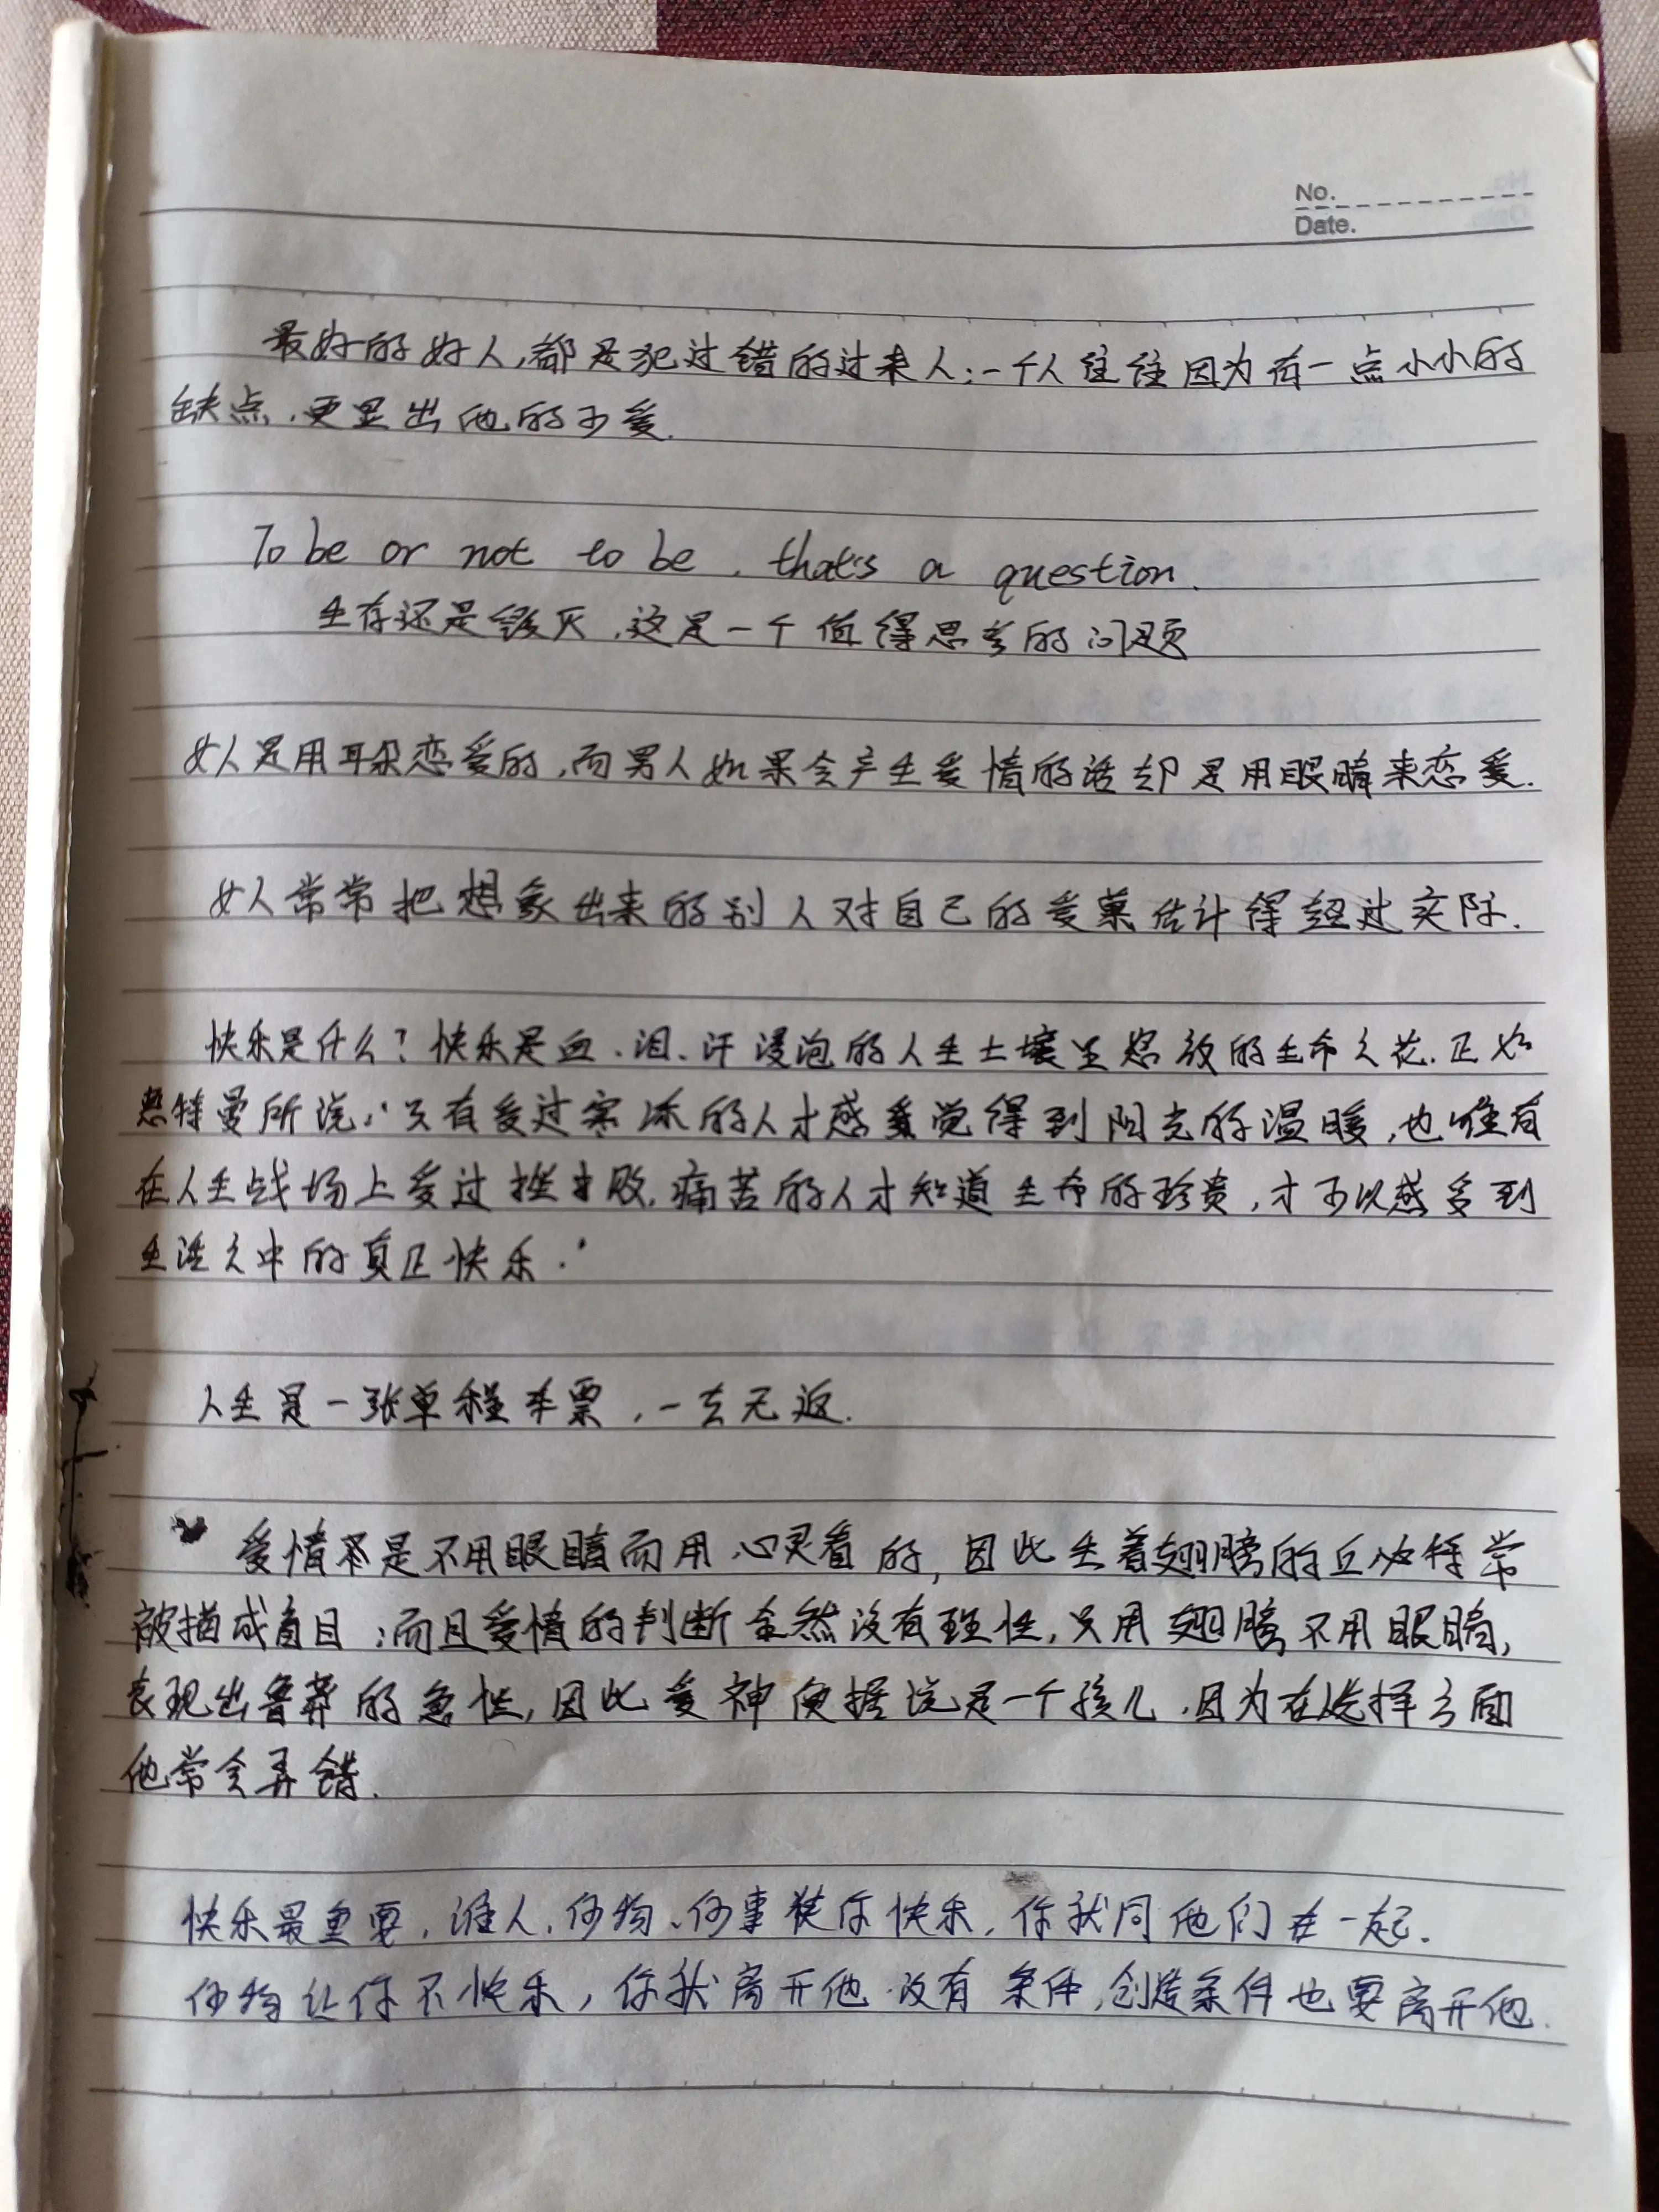 No.
Date.
最好的好人,都是犯过错的过来人;一个人往往因为有一点小小的
缺点,更显出他的可爱.
To be or not to be, that's a question.
生存还是毁灭,这是一个值得思考的问题
女人是用耳朵恋爱的,而男人如果会产生爱情的话却是用眼睛来恋爱.
女人常常把想象出来的别人对自己的爱慕估计得超过实际.
快乐是什么?快乐是血、泪、汗浸泡的人生土壤里怒放的生命之花.正如
惠特曼所说:"只有受过寒冻的人才感觉得到阳光的温暖,也唯有
在人生战场上受过挫败,痛苦的人才知道生命的珍贵,才可以感受到
生活之中的真正快乐."
人生是一张单程车票,一去无返.
爱情不是不用眼睛而用心灵看的,因此生着翅膀的丘比特常
被描成盲目;而且爱情的判断全然没有理性,只用翅膀不用眼睛,
表现出鲁莽的急性,因此爱神便据说是一个孩儿,因为在选择方面
他常会弄错.
快乐最重要,谁人、何物、何事使你快乐,你就同他们在一起.
何物让你不快乐,你就离开他.没有条件,创造条件也要离开他.